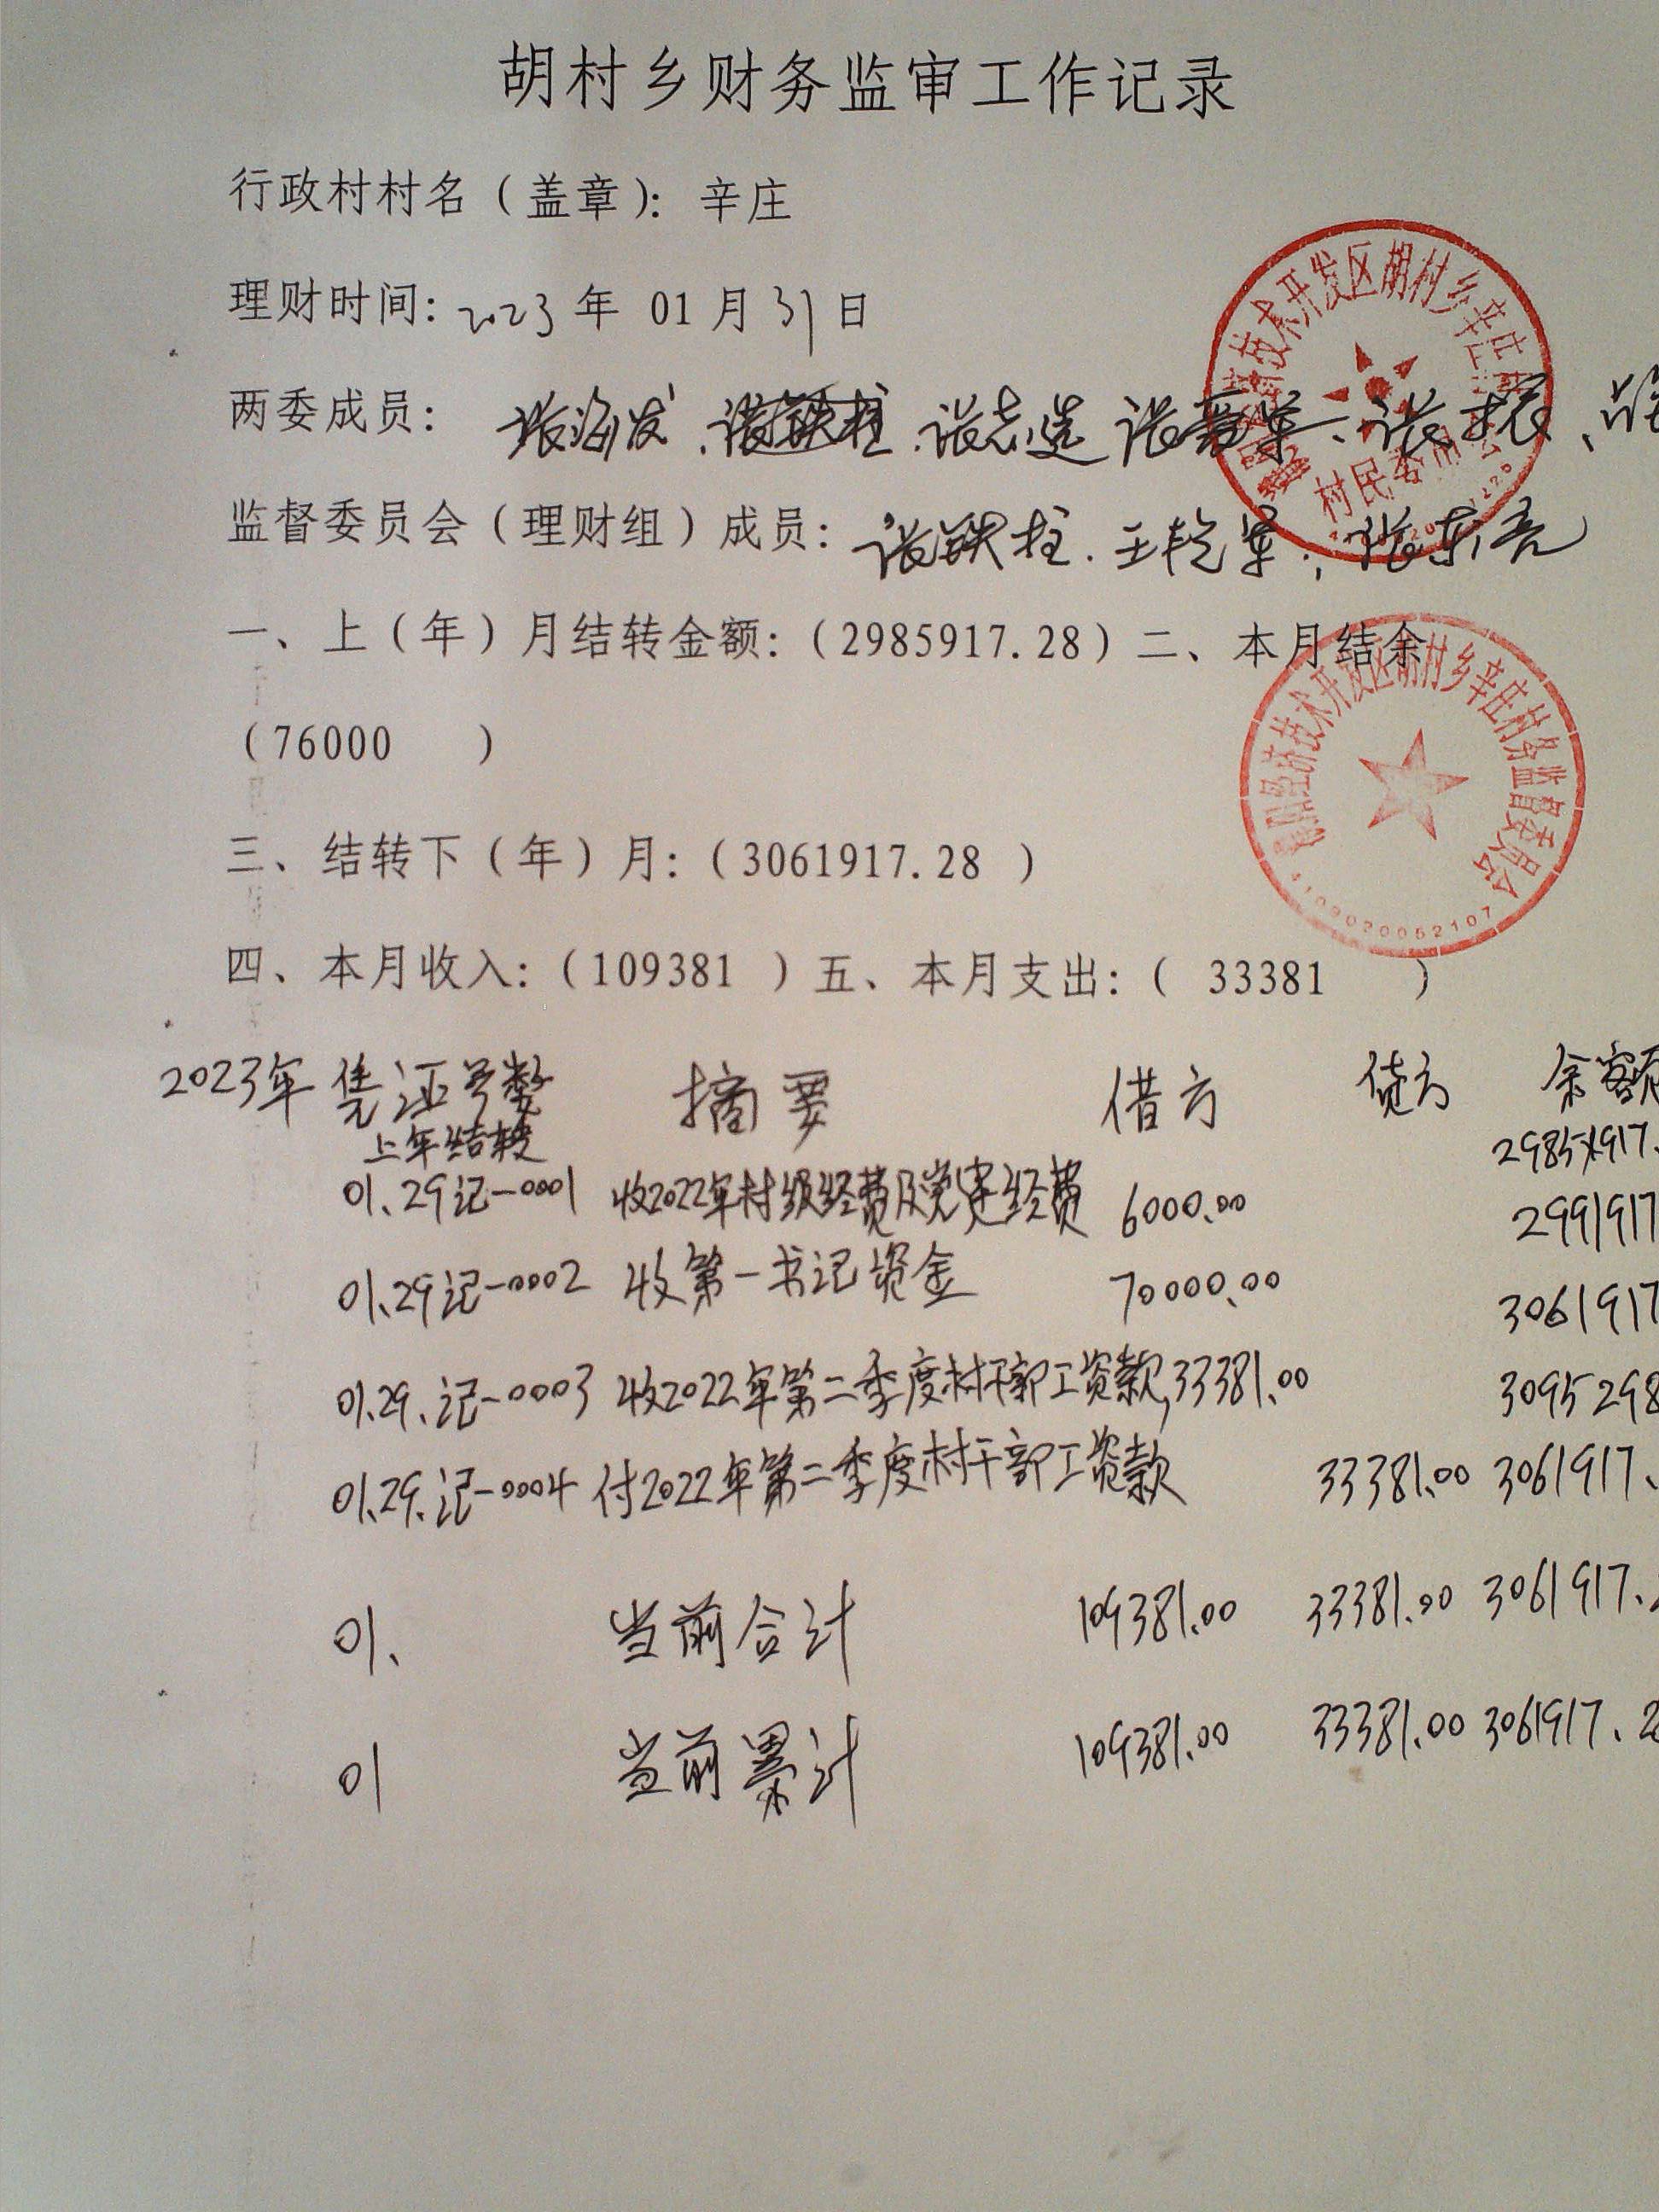 胡村乡财务监审工作记录
行政村村名（盖章）：辛庄
理财时间：2023年 01月31日
两委成员：张海发、张铁柱、张志选 张、张振、
监督委员会（理财组）成员：张铁柱、王艳军、张东亮
技术开发区胡村乡辛庄
村民委员
一、上（年）月结转金额：（2985917.28）二、本月结余
（76000 ）
经济技术开发区胡村乡辛庄村务监督委员会
4109020052107
三、结转下（年）月：（3061917.28 ）
四、本月收入：（109381 ）五、本月支出：（ 33381 ）
2023年 凭证号数 摘要 借方 贷方 余额
上年结转 2985917.
01.29记-0001 收2022年村级经费及党建经费 6000.00 2991917
01.29记-0002 收第一书记资金 70000.00 3061917
01.29.记-0003 收2022年第二季度村干部工资款,33381.00 3095298
01.29.记-0004 付2022年第二季度村干部工资款 33381.00 3061917.
01、 当前合计 109381.00 33381.00 3061917.
01 当前累计 109381.00 33381.00 3061917.2